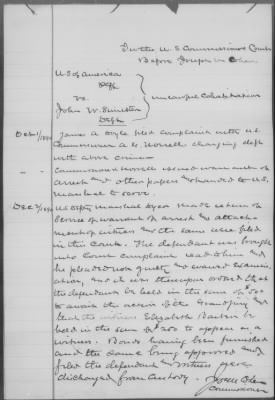 In the U.S. Commissioners Court
Before Joseph W. Oker
US of America
Plff
vs.
unlawful Cohabitation
John W.
Deft
Dec 1/1890 James A Doyle filed complaint with U.S.
Commissioner A G. Norrell charging deft
with above crime
Commissioner Norrell issued warrant of
arrest and other papers and handed to U.S.
marshal to serve
Dec 2/1890 US Deputy marshal Dyer made return of
Service of warrant of arrest and attach-
ment of witness and the same were filed
in this Court. The defendant was brought
into Court complaint read to him and
he pleaded not guilty and waived Examin-
ation, and it was thereupon ordered that
the defendant be held in the sum of $500
to await the action of the Grand Jury and
that the witness Elizabeth be
held in the sum of $200 to appear as a
witness. Bonds having been furnished
and the same being approved and
filed the defendant and witness were
discharged from Custody.
Commissioner